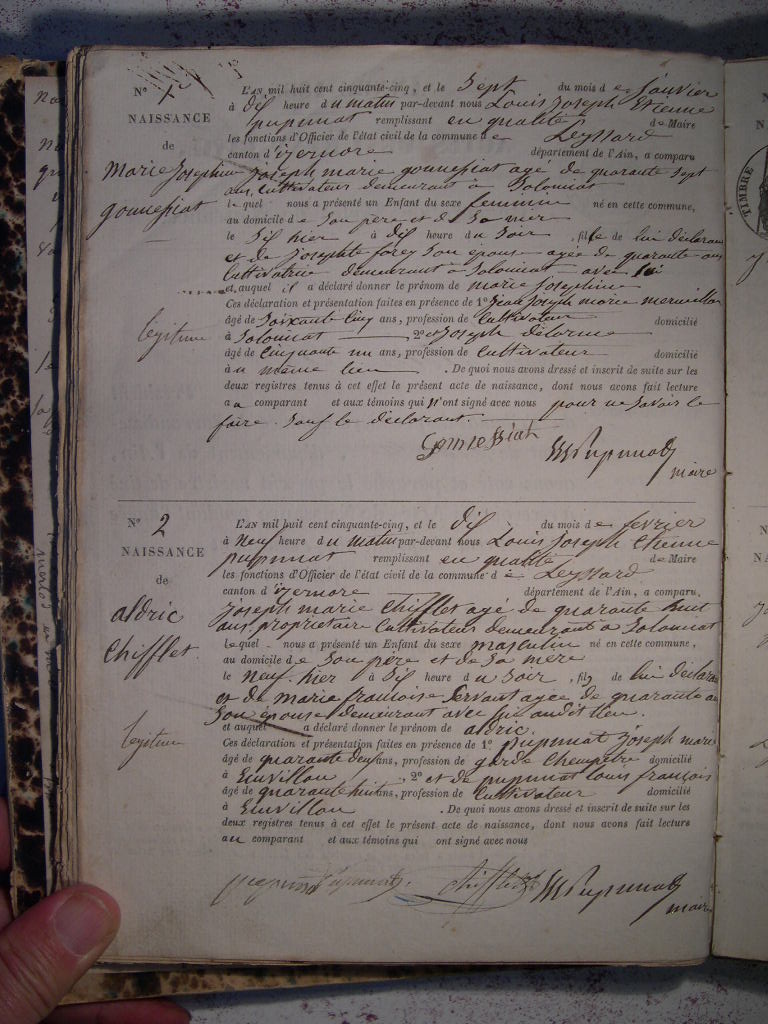 N° 1
NAISSANCE
de
Marie Josephine
gonnessiat
legitime
L'AN mil huit cent cinquante-cinq, et le Sept du mois de Janvier
à dix heure du matin par-devant nous Louis Joseph Etienne
pupunat remplissant en qualité de Maire
les fonctions d'Officier de l'état civil de la commune de Leyssard
canton d'izernore département de l'Ain, a comparu
Joseph marie gonnessiat age de quarante sept
ans, cultivateur demeurant à Solomiat
lequel nous a présenté un Enfant du sexe feminin né en cette commune,
au domicile de Son père et de Sa mer
le Six hier à dix heure du Soir, fille de lui déclarant
et de Josephte forey Son épouse agée de quarante ans
Cultivatrice demeurant à Solomiat avec lui
et auquel il a déclaré donner le prénom de marie Josephine
Ces déclaration et présentation faites en présence de 1° Jean Joseph marie mermillon
âgé de Soixante Cinq ans, profession de Cultivateur domicilié
à Solomiat 2° et Joseph delorme
âgé de Cinquante un ans, profession de Cultivateur domicilié
au même lieu. De quoi nous avons dressé et inscrit de suite sur les
deux registres tenus à cet effet le présent acte de naissance, dont nous avons fait lecture
au comparant et aux témoins qui n'ont signé avec nous pour ne Savoir le
faire. Sauf le déclarant.
Gonnessiat Pupunat
maire
N° 2
NAISSANCE
de
aldric
Chifflet
legitime
L'AN mil huit cent cinquante-cinq, et le dix du mois de fevrier
à neuf heure du matin par-devant nous Louis Joseph Etienne
pupunat remplissant en qualité de Maire
les fonctions d'Officier de l'état civil de la commune de Leyssard
canton d'izernore département de l'Ain, a comparu,
Joseph marie Chifflet agé de quarante huit
ans, proprietaire Cultivateur demeurant à Solomiat
lequel nous a présenté un Enfant du sexe masculin né en cette commune,
au domicile de Son père et de Sa mère
le neuf hier à dix heure du Soir, fils de lui déclarant
et de marie francoise Servant agée de quarante ans
Son épouse demeurant avec lui audit lieu.
et auquel a déclaré donner le prénom de aldric.
Ces déclaration et présentation faites en présence de 1° pupunat Joseph marie
âgé de quarante deux ans, profession de garde Champêtre domicilié
à Envillon, 2° et de pupunat louis françois
âgé de quarante huit ans, profession de Cultivateur domicilié
à Envillon. De quoi nous avons dressé et inscrit de suite sur les
deux registres tenus à cet effet le présent acte de naissance, dont nous avons fait lecture
au comparant et aux témoins qui ont signé avec nous
Pupunat. Chifflet Pupunat
maire
TIMBRE